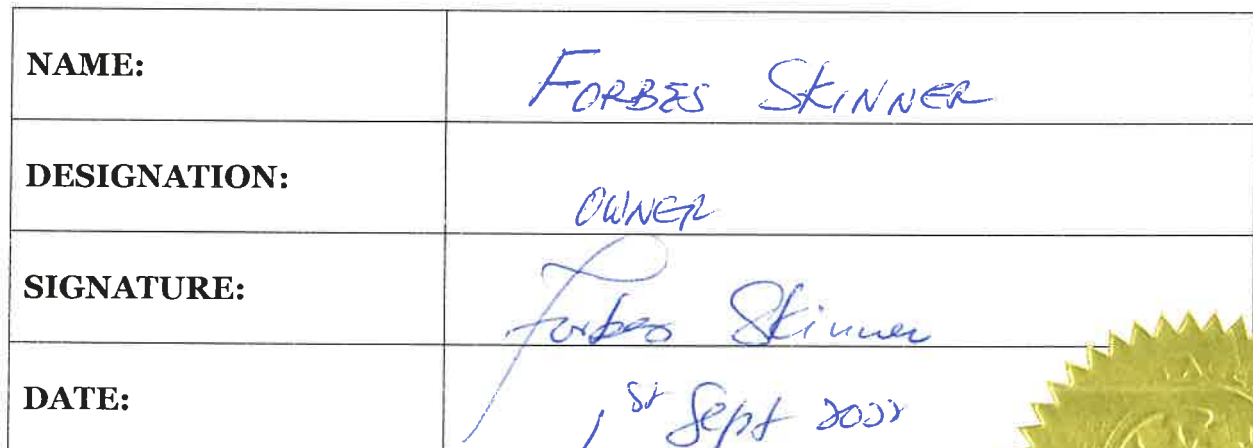 NAME: FORBES SKINNER
DESIGNATION: OWNER
SIGNATURE: Forbes Skinner
DATE: 1st Sept 2022